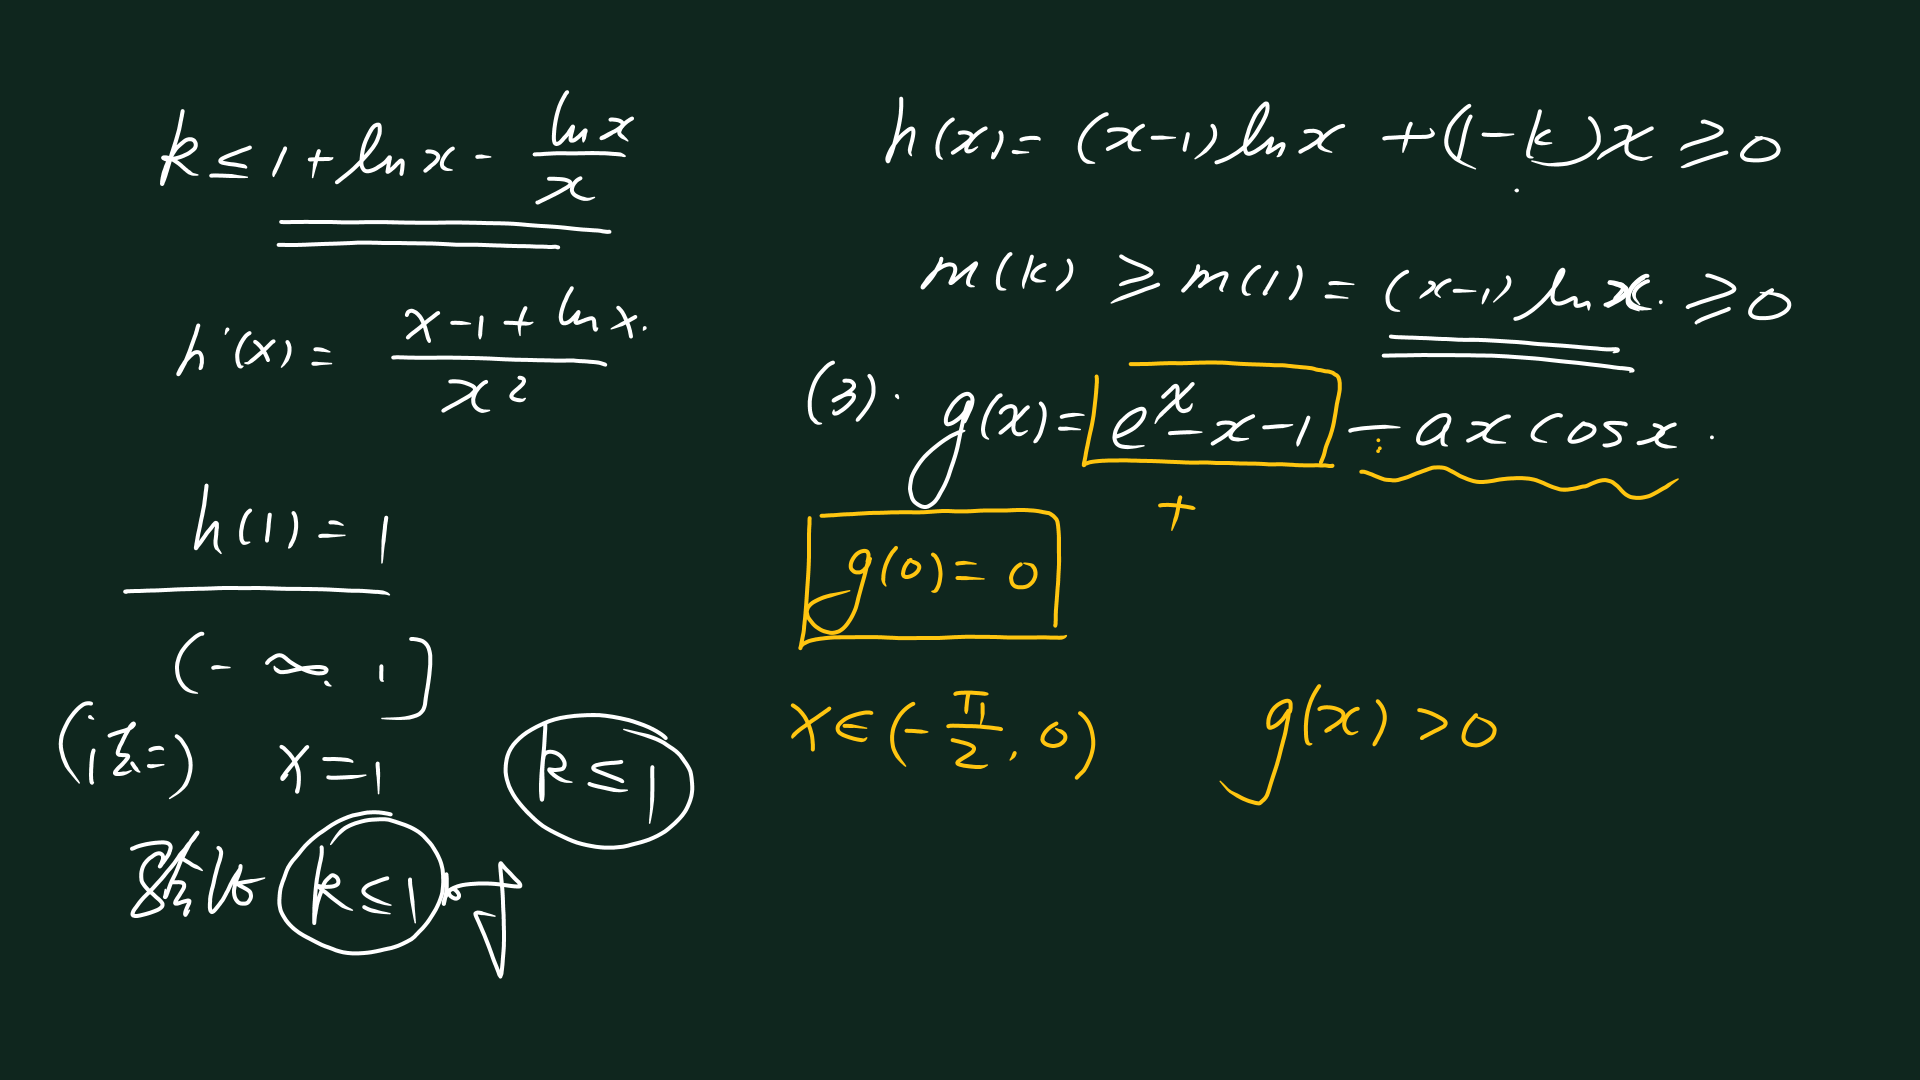 k ≤ 1 + ln x - \frac{ln x}{x}
h'(x) = \frac{x-1+ln x}{x^2}
h(1) = 1
(-∞, 1]
(法二) x=1 k≤1
验证 k≤1 时
h(x) = (x-1)ln x + (1-k)x ≥ 0
m(k) ≥ m(1) = (x-1)ln x. ≥ 0
(3). g(x) = e^x - x - 1 - a x cos x.
+
g(0) = 0
x ∈ (-\frac{π}{2}, 0) g(x) > 0